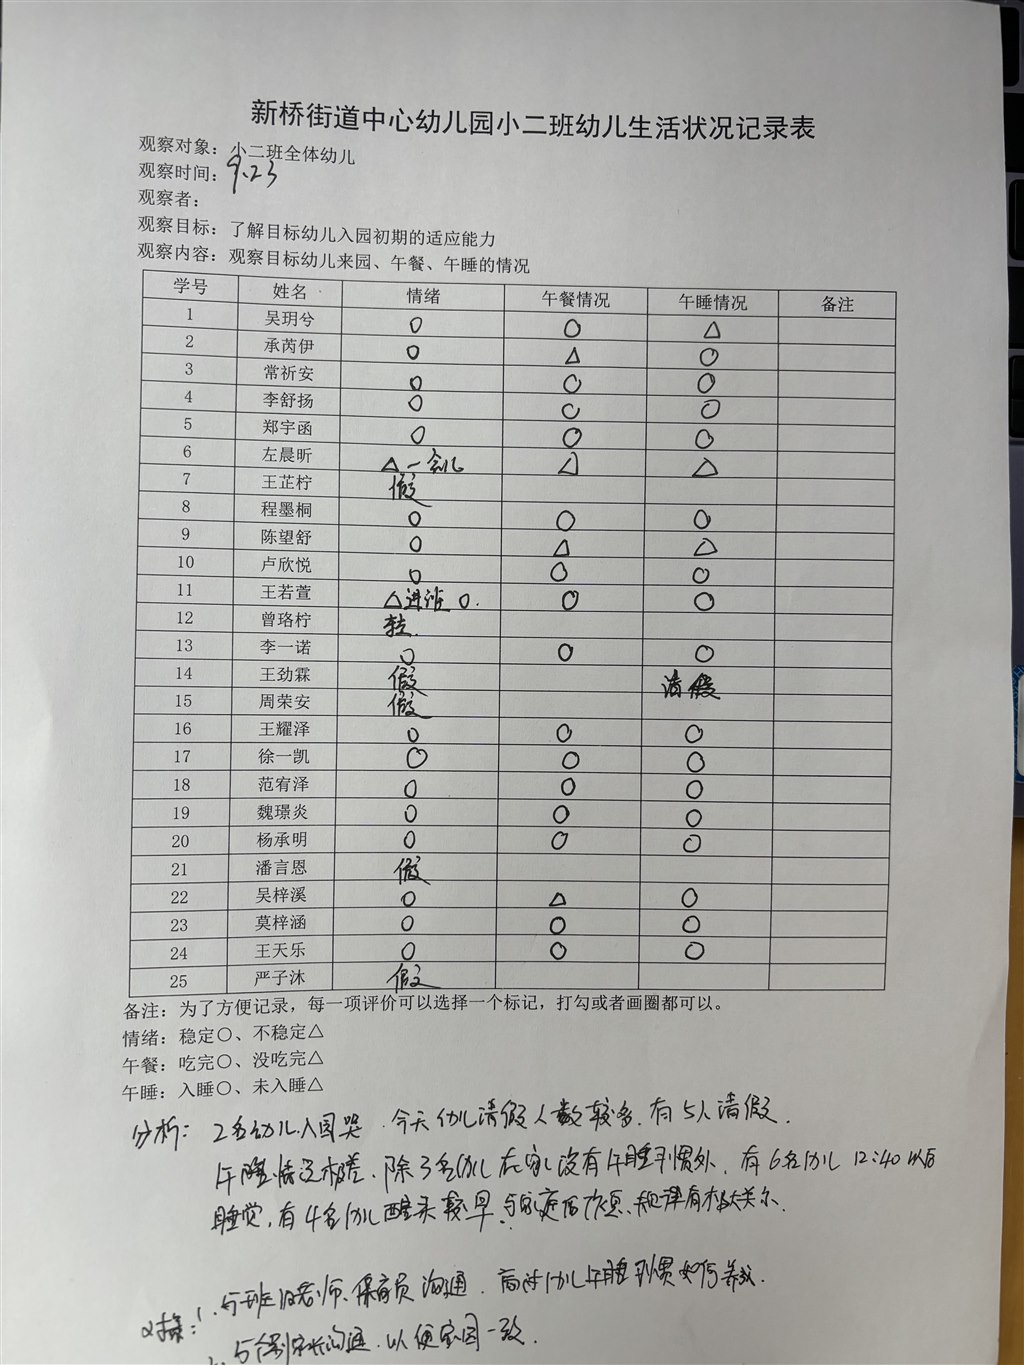 新桥街道中心幼儿园小二班幼儿生活状况记录表
观察对象：小二班全体幼儿
观察时间：9.23
观察者：
观察目标：了解目标幼儿入园初期的适应能力
观察内容：观察目标幼儿来园、午餐、午睡的情况
学号 姓名 情绪 午餐情况 午睡情况 备注
1 吴玥兮 ○ ○ △
2 承芮伊 ○ △ ○
3 常祈安 ○ ○ ○
4 李舒扬 ○ ○ ○
5 郑宇函 ○ ○ ○
6 左晨昕 △一会儿 △ △
7 王芷柠 假
8 程墨桐 ○ ○ ○
9 陈望舒 ○ △ △
10 卢欣悦 ○ ○ ○
11 王若萱 △进班 ○. ○ ○
12 曾珞柠
13 李一诺 ○ ○ ○
14 王劲霖 假 请假
15 周荣安 假
16 王耀泽 ○ ○ ○
17 徐一凯 ○ ○ ○
18 范宥泽 ○ ○ ○
19 魏璟炎 ○ ○ ○
20 杨承明 ○ ○ ○
21 潘言恩 假
22 吴梓溪 ○ △ ○
23 莫梓涵 ○ ○ ○
24 王天乐 ○ ○ ○
25 严子沐 假
备注：为了方便记录，每一项评价可以选择一个标记，打勾或者画圈都可以。
情绪：稳定○、不稳定△
午餐：吃完○、没吃完△
午睡：入睡○、未入睡△
分析：2名幼儿入园哭．今天幼儿请假人数较多．有5人请假．
午睡情况极差．除3名幼儿在家没有午睡习惯外．有6名幼儿12:40以后
睡觉，有4名幼儿醒来较早．与家庭作息、规律有极大关系．
1．与班级老师、保育员沟通．商讨幼儿午睡习惯如何养成．
与个别家长沟通．以便家园一致．